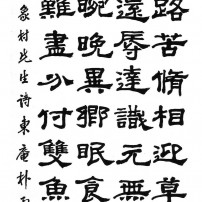 路苦脩相迎草
遠辱達識元無
晼晚異鄉眠食
難盡分付雙魚
象村先生詩東庵朴